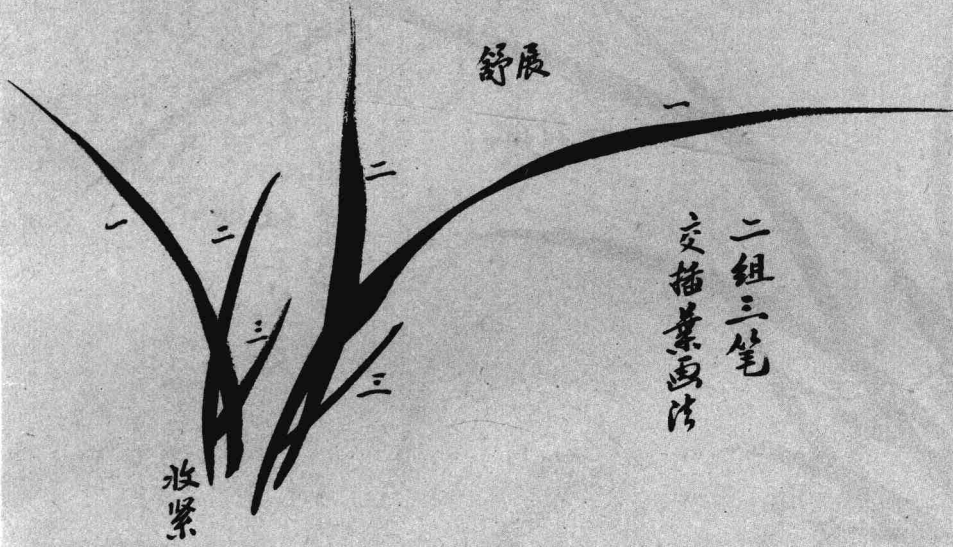 舒展
一
二
三
一
二
三
二组三笔
交插葉画法
收紧